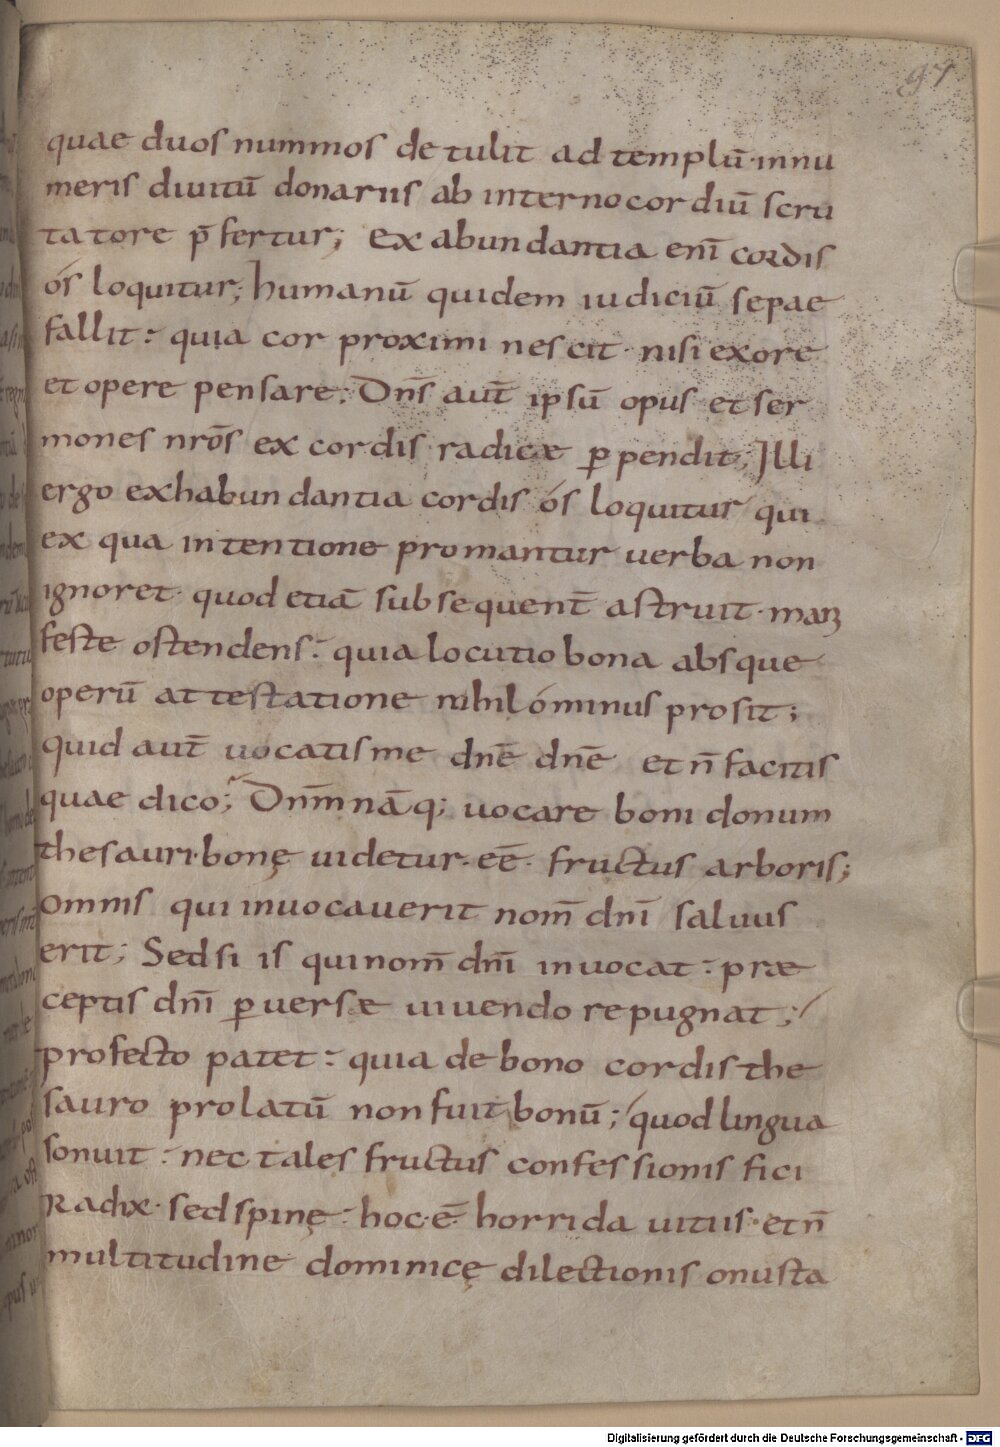 97
quae duos nummos detulit ad templū·innu
meris diuitū donariis ab interno cordiū scru
tatore p̄fertur; Ex abundantia enī cordis
ós loquitur; humanū quidem iudiciū sepae
fallit: quia cor proximi nescit· nisi ex ore
et opere pensare; Dn̄s aut̄ ipsū opus et ser
mones nr̄os ex cordis radicae ꝑpendit; Illi
ergo exhabundantia cordis ós loquitur qui
ex qua intentione promantur uerba non
ignoret· quod etiā subsequent̄ astruit· mani
feste ostendens: quia locutio bona absque
operū attestatione nihilóminus prosit;
quid aut̄ uocatis me dn̄e dn̄e et n̄ facitis
quae dico; Dn̄m nāq; uocare boni donum
thesauri·bonę uidetur·eē· fructus arboris;
omnis qui inuocauerit nom̄ dn̄i saluus
erit; Sed si is qui nom̄ dn̄i inuocat: prae
ceptis dn̄i ꝑuersae uiuendo repugnat;
profecto patet: quia de bono cordis the
sauro prolatū non fuit bonū; quod lingua
sonuit: nec tales fructus confessionis fici
Radix· sed spinę: hoc·ē· horrida uitiis·et n̄
multitudine dominicę dilectionis onusta
Digitalisierung gefördert durch die Deutsche Forschungsgemeinschaft - DFG